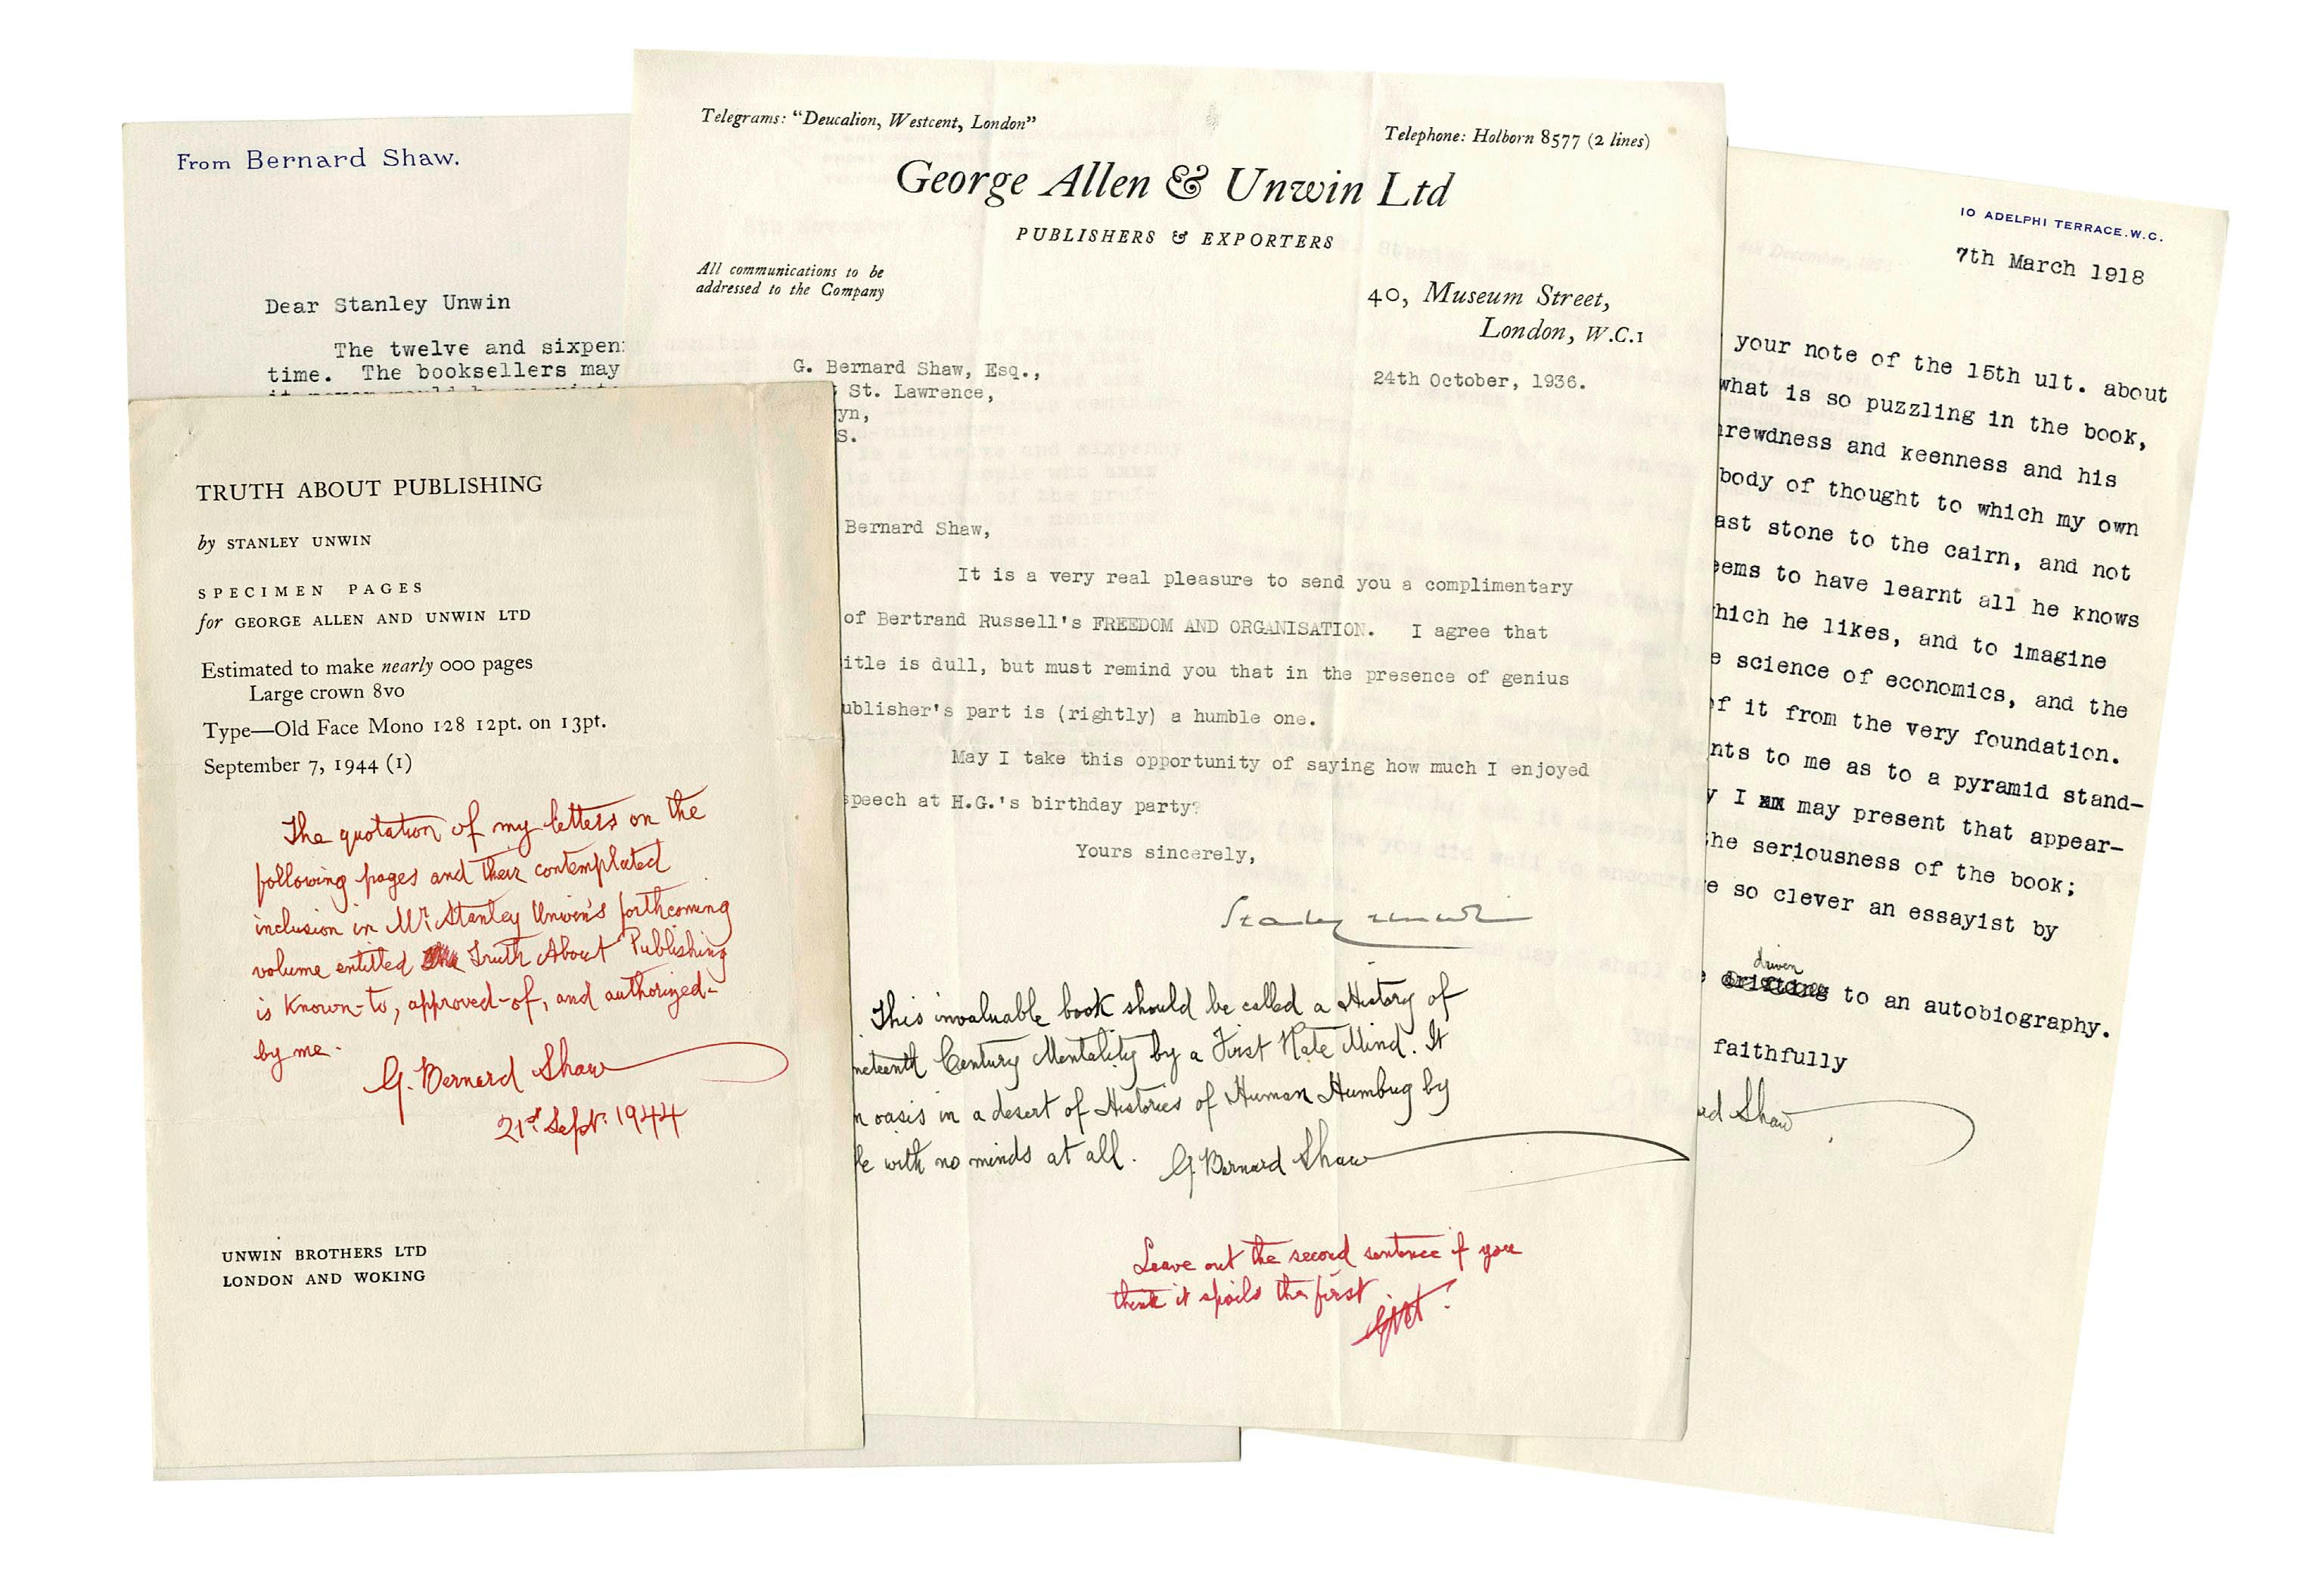 From Bernard Shaw.
Dear Stanley Unwin
The twelve and sixpen
time. The booksellers may
TRUTH ABOUT PUBLISHING
by STANLEY UNWIN
SPECIMEN PAGES
for GEORGE ALLEN AND UNWIN LTD
Estimated to make nearly 000 pages
Large crown 8vo
Type—Old Face Mono 128 12pt. on 13pt.
September 7, 1944 (1)
The quotation of my letters on the
following pages and their contemplated
inclusion in Mr Stanley Unwin's forthcoming
volume entitled Truth About Publishing
is known-to, approved-of, and authorized-
by me.
G. Bernard Shaw
21st Sept. 1944
UNWIN BROTHERS LTD
LONDON AND WOKING
Telegrams: "Deucalion, Westcent, London"
Telephone: Holborn 8577 (2 lines)
George Allen & Unwin Ltd
PUBLISHERS & EXPORTERS
All communications to be
addressed to the Company
40, Museum Street,
London, W.C.1
G. Bernard Shaw, Esq.,
St. Lawrence,
yn,
S.
24th October, 1936.
Bernard Shaw,
It is a very real pleasure to send you a complimentary
of Bertrand Russell's FREEDOM AND ORGANISATION. I agree that
itle is dull, but must remind you that in the presence of genius
ublisher's part is (rightly) a humble one.
May I take this opportunity of saying how much I enjoyed
speech at H.G.'s birthday party?
Yours sincerely,
Stanley Unwin
This invaluable book should be called a History of
neteenth Century Mentality by a First Rate Mind. It
n oasis in a desert of Histories of Human Humbug by
le with no minds at all. G. Bernard Shaw
Leave out the second sentence if you
think it spoils the first
10 ADELPHI TERRACE.W.C.
7th March 1918
your note of the 15th ult. about
what is so puzzling in the book,
rewdness and keenness and his
body of thought to which my own
ast stone to the cairn, and not
eems to have learnt all he knows
hich he likes, and to imagine
e science of economics, and the
of it from the very foundation.
nts to me as to a pyramid stand-
y I xx may present that appear-
the seriousness of the book;
e so clever an essayist by
driven
e drifting to an autobiography.
faithfully
rd Shaw